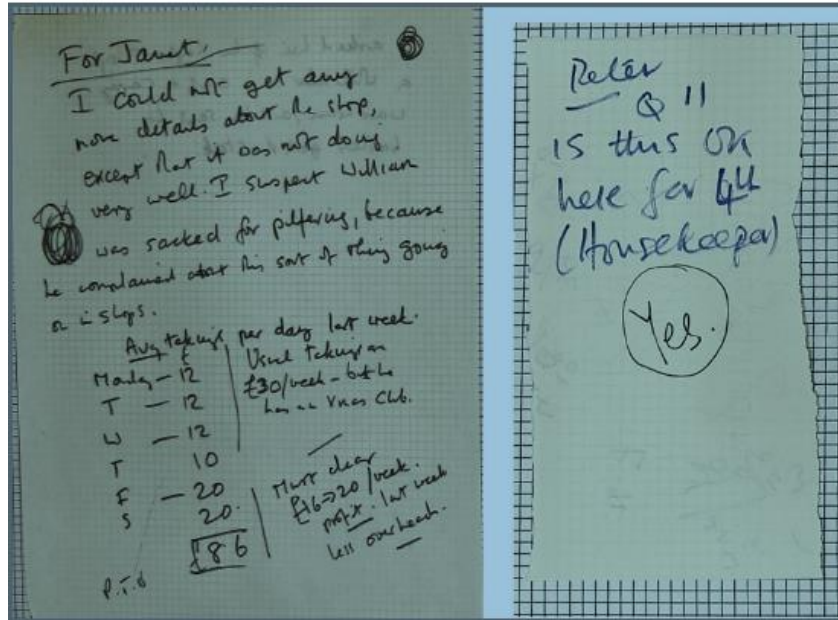 For Janet.
I could not get any
more details about the shop,
except that it was not doing
very well. I suspect William
was sacked for pilfering, because
he complained about this sort of thing going
on in shops.
Avg takings per day last week.
£
Monday - 12
T - 12
W - 12
T 10
F - 20
S 20.
£86
P.T.O
Usual takings are
£30/week - but he
has an Xmas Club.
Must clear
£16->20/week.
profit. last week
less overheads.
Peter
Q 11
is this OK
here for 4U
(Housekeeper)
Yes.